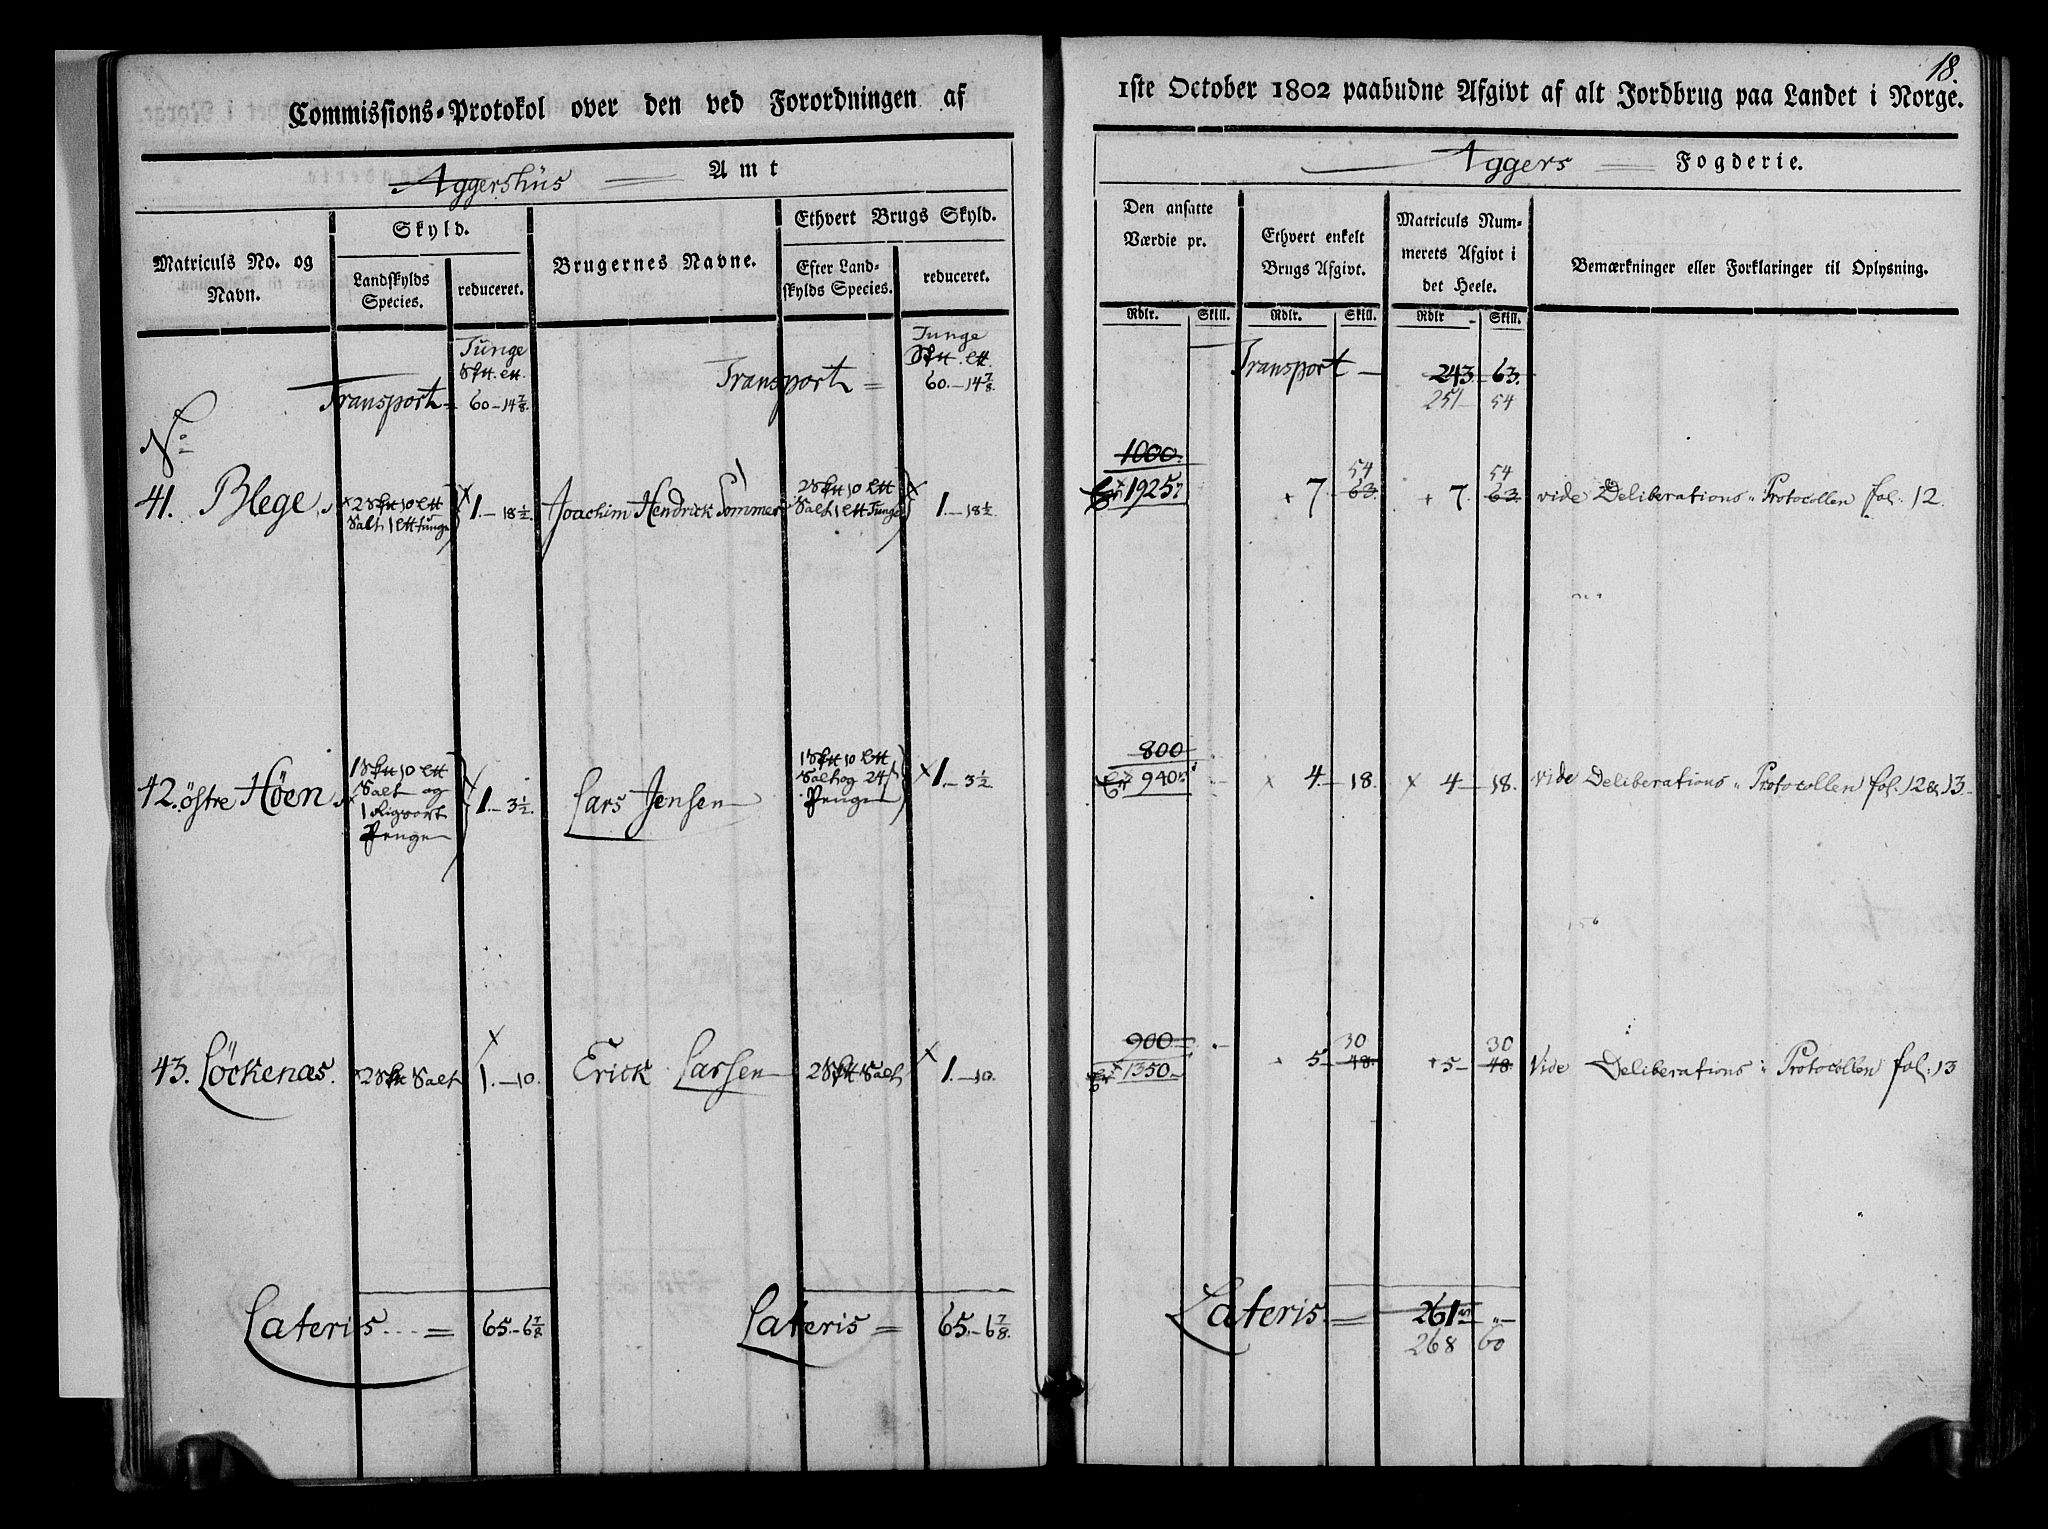 18.
Commissions-Protokol over den ved Forordningen af
1ste October 1802 paabudne Afgivt af alt Jordbrug paa Landet i Norge.
Aggershüs Amt
Aggers Fogderie.
Matriculs No. og Navn.
Skyld.
Landskylds Species.
reduceret.
Brugernes Navne.
Ethvert Brugs Skyld.
Efter Landskylds Species.
reduceret.
Den ansatte Værdie pr.
Ethvert enkelt Brugs Afgivt.
Matriculs Nummerets Afgivt i det Heele.
Bemærkninger eller Forklaringer til Oplysning.
Rdlr. Skill. Rdlr. Skill. Rdlr Skill.
Tunge
Transport 60 - 14 7/8.
Tunge
Transport = 60. - 14 7/8
Transport - 243. 63.
251 54
No
41. Blege 2 Sktt 10 Ltt Salt 1 Ltt tunge 1. - 18 1/2 Joachim Hendrick Sommer 2 Sktt 10 Ltt Salt 1 Ltt Tunge 1. - 18 1/2
1000.
1925 + 7 54 63. + 7. 54 63. vide Deliberations Protocollen fol. 12.
42. östre Høen 1 Sktt 10 Ltt Salt og 1 Rigsort Penge 1. - 3 1/2. Lars Jensen 1 Sktt 10 Ltt Salt og 24 Penge 1. - 3 1/2
800
940 x 4. - 18. x 4 - 18. vide Deliberations Protocollen fol. 12 & 13.
43. Löckenas. 2 Sktt Salt 1. - 10. Erick Larsen 2 Sktt Salt 1. - 10.
900
1350 + 5 - 30 48. + 5 - 30 48. Vide Deliberations Protocollen fol. 13
Lateris = 65. - 6 7/8
Lateris = 65. - 6 7/8.
Lateris. = 261 " -
268 60